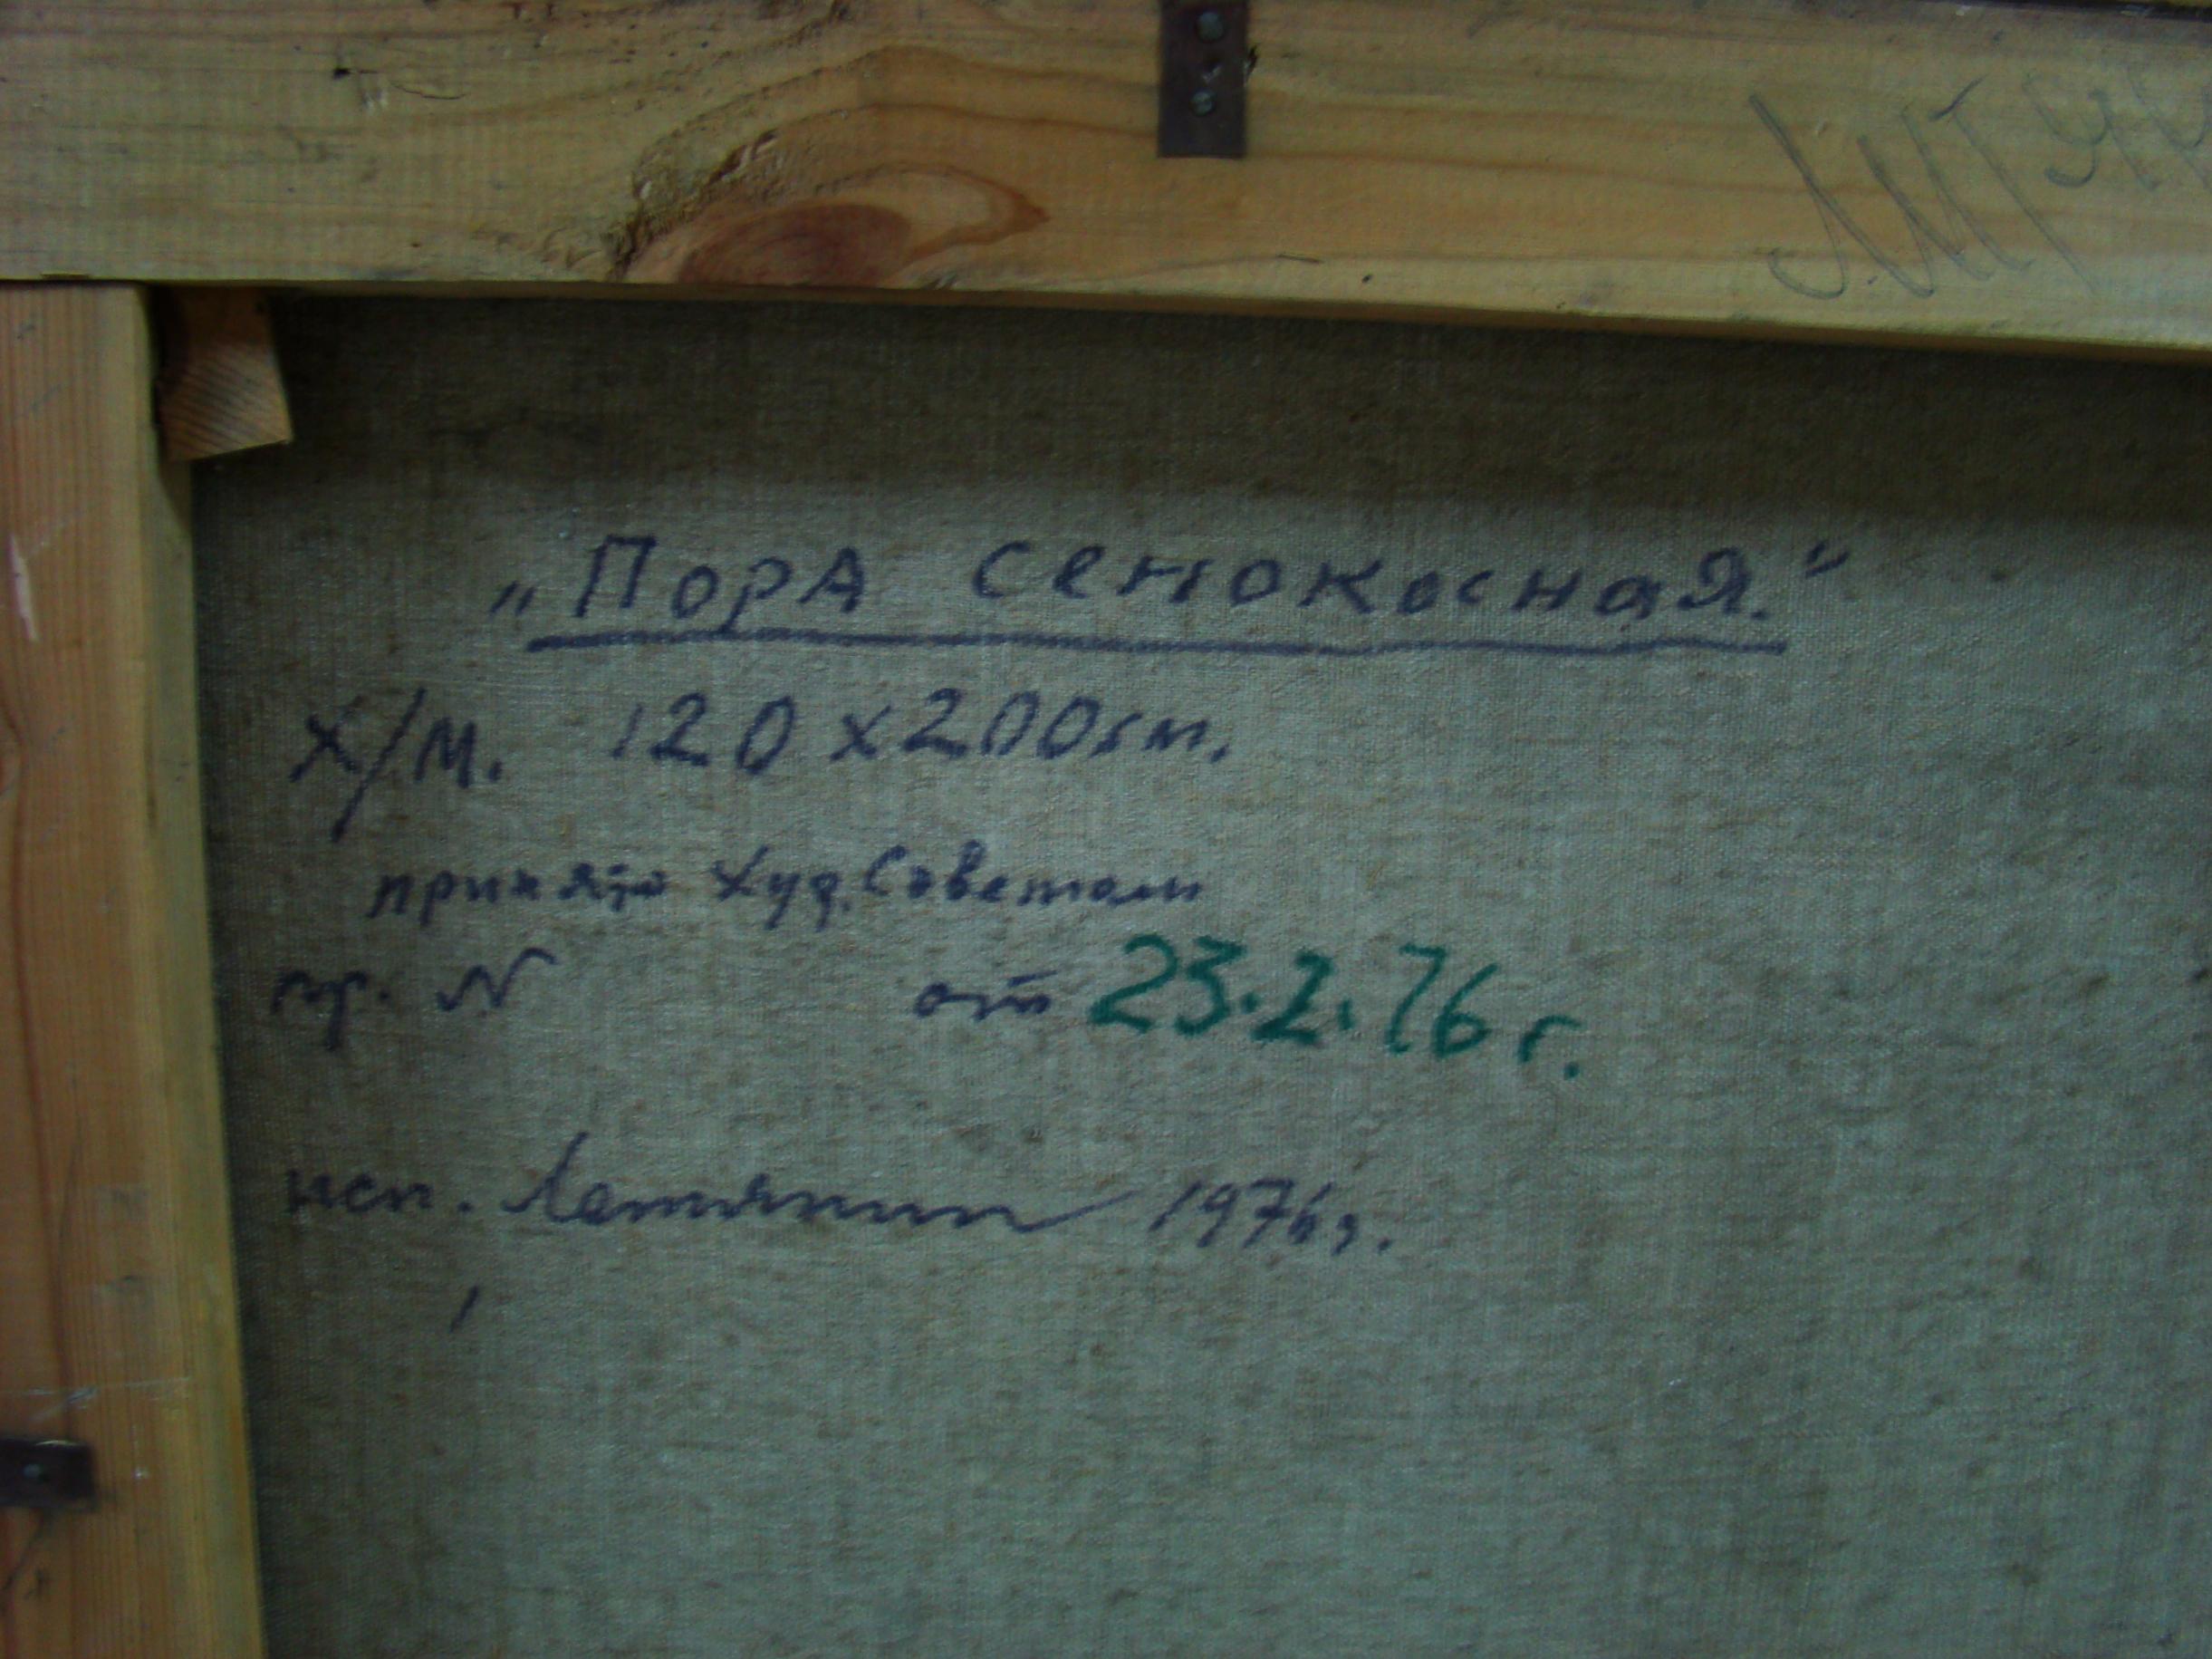 „Пора сенокосная."
х/м. 120 х 200 см.
принято Худ. Советом
пр. N от 23.2.76 г.
исп. 1976 г.